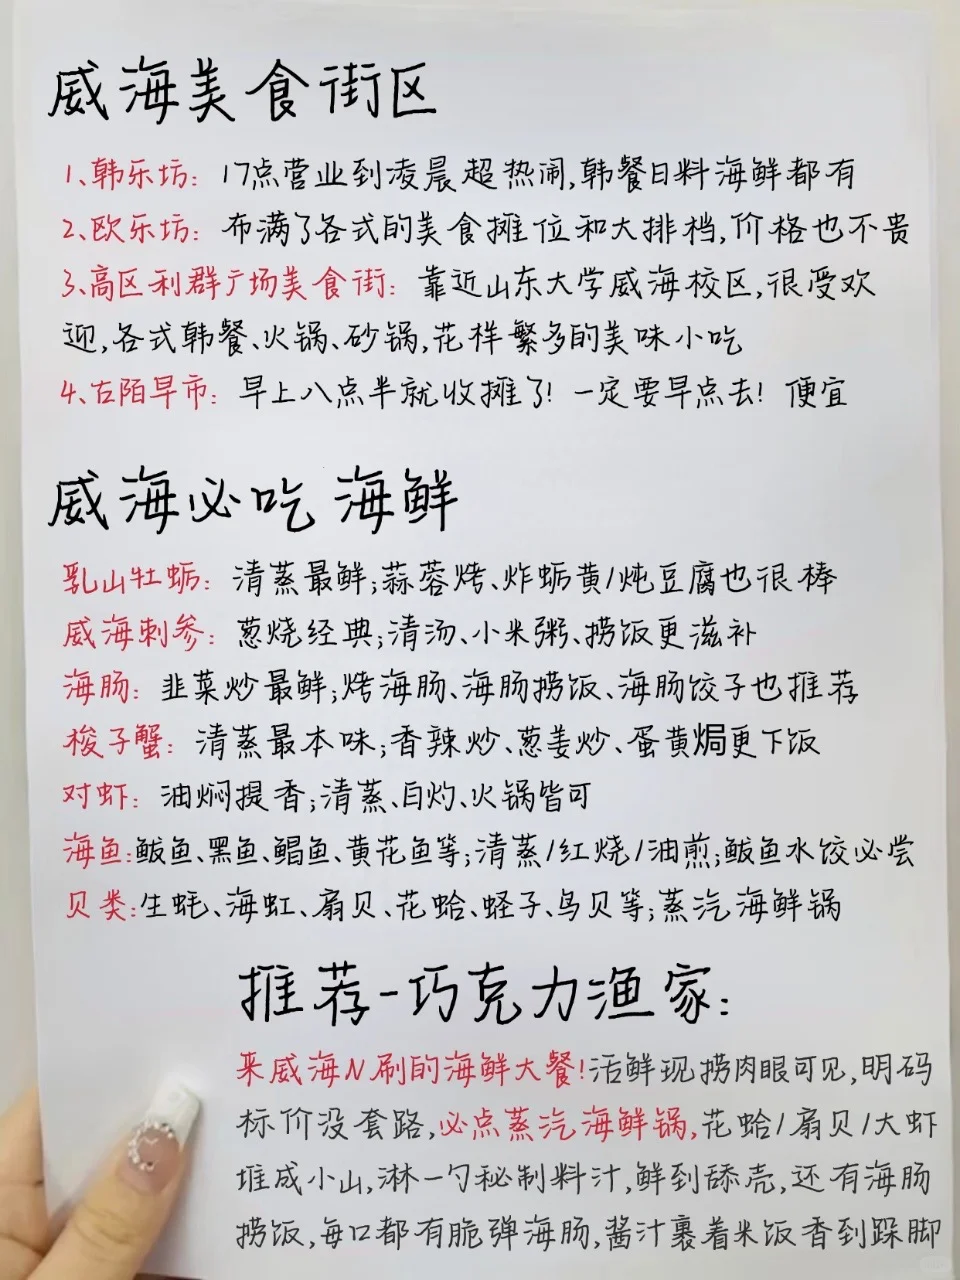 威海美食街区
1、韩乐坊：17点营业到凌晨超热闹,韩餐日料海鲜都有
2、欧乐坊：布满了各式的美食摊位和大排档,价格也不贵
3、高区利群广场美食街：靠近山东大学威海校区,很受欢
迎,各式韩餐、火锅、砂锅,花样繁多的美味小吃
4、古陌早市：早上八点半就收摊了！一定要早点去！便宜
威海必吃海鲜
乳山牡蛎：清蒸最鲜;蒜蓉烤、炸蛎黄/炖豆腐也很棒
威海刺参：葱烧经典;清汤、小米粥、捞饭更滋补
海肠：韭菜炒最鲜;烤海肠、海肠捞饭、海肠饺子也推荐
梭子蟹：清蒸最本味;香辣炒、葱姜炒、蛋黄焗更下饭
对虾：油焖提香;清蒸、白灼、火锅皆可
海鱼:鲅鱼、黑鱼、鲳鱼、黄花鱼等;清蒸/红烧/油煎;鲅鱼水饺必尝
贝类:生蚝、海虹、扇贝、花蛤、蛏子、鸟贝等;蒸汽海鲜锅
推荐-巧克力渔家：
来威海N刷的海鲜大餐!活鲜现捞肉眼可见,明码
标价没套路,必点蒸汽海鲜锅,花蛤/扇贝/大虾
堆成小山,淋一勺秘制料汁,鲜到舔壳,还有海肠
捞饭,每口都有脆弹海肠,酱汁裹着米饭香到跺脚